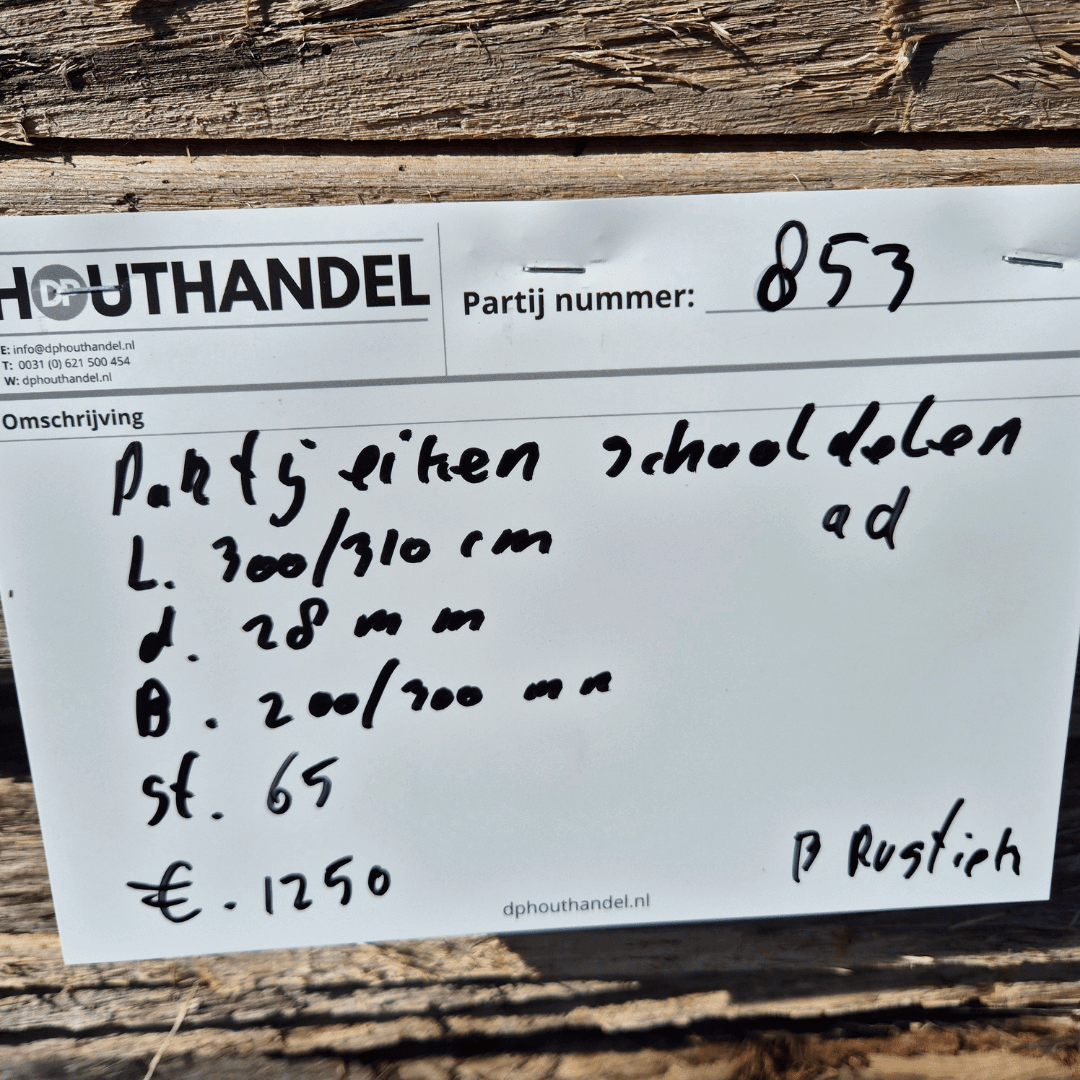 HOUTHANDEL
DP
E: info@dphouthandel.nl
T: 0031 (0) 621 500 454
W: dphouthandel.nl
Partij nummer: 853
Omschrijving
Partij eiken schooldelen
ad
L. 300/310 cm
d. 28 mm
B. 200/300 mm
st. 65
€. 1250
B Rustiek
dphouthandel.nl